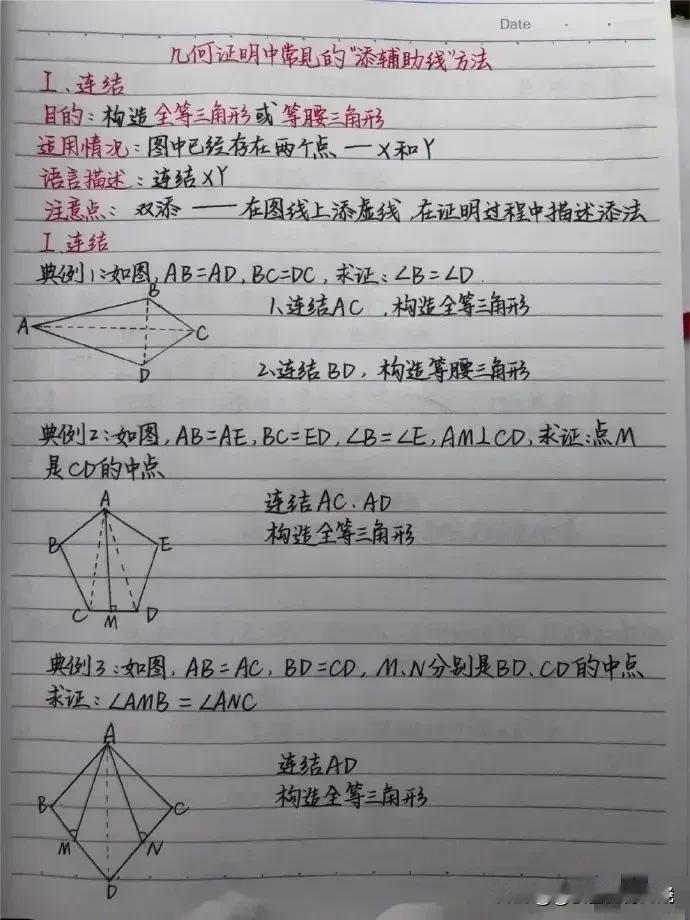 Date
几何证明中常见的"添辅助线"方法
I、连结
目的：构造全等三角形或等腰三角形
适用情况：图中已经存在两个点—X和Y
语言描述：连结XY
注意点：双添——在图线上添虚线，在证明过程中描述添法
I、连结
典例1：如图，AB=AD，BC=DC，求证：∠B=∠D.
B
A
C
D
1、连结AC，构造全等三角形
2、连结BD，构造等腰三角形
典例2：如图，AB=AE，BC=ED，∠B=∠E，AM⊥CD，求证：点M
是CD的中点
A
B
E
C
M
D
连结AC、AD
构造全等三角形
典例3：如图，AB=AC，BD=CD，M、N分别是BD、CD的中点
求证：∠AMB=∠ANC
A
B
C
M
N
D
连结AD
构造全等三角形